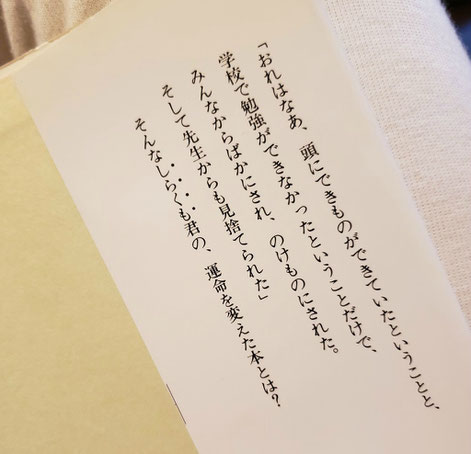 「おれはなあ、頭にできものができていたということと、
学校で勉強ができなかったということだけで、
みんなからばかにされ、のけものにされた。
そして先生からも見捨てられた」
そんなしらくも君の、運命を変えた本とは?